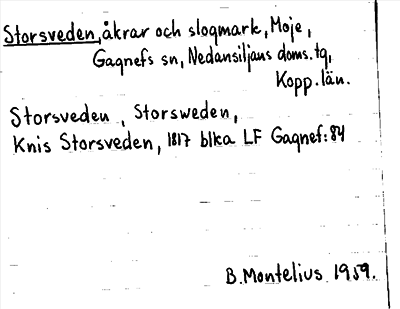 Storsveden, åkrar och slogmark, Moje,
Gagnefs sn, Nedansiljans doms. tg,
Kopp. län.
Storsveden, Storsweden,
Knis Storsveden, 1817 blka LF Gagnef: 84
B. Montelius 1959.